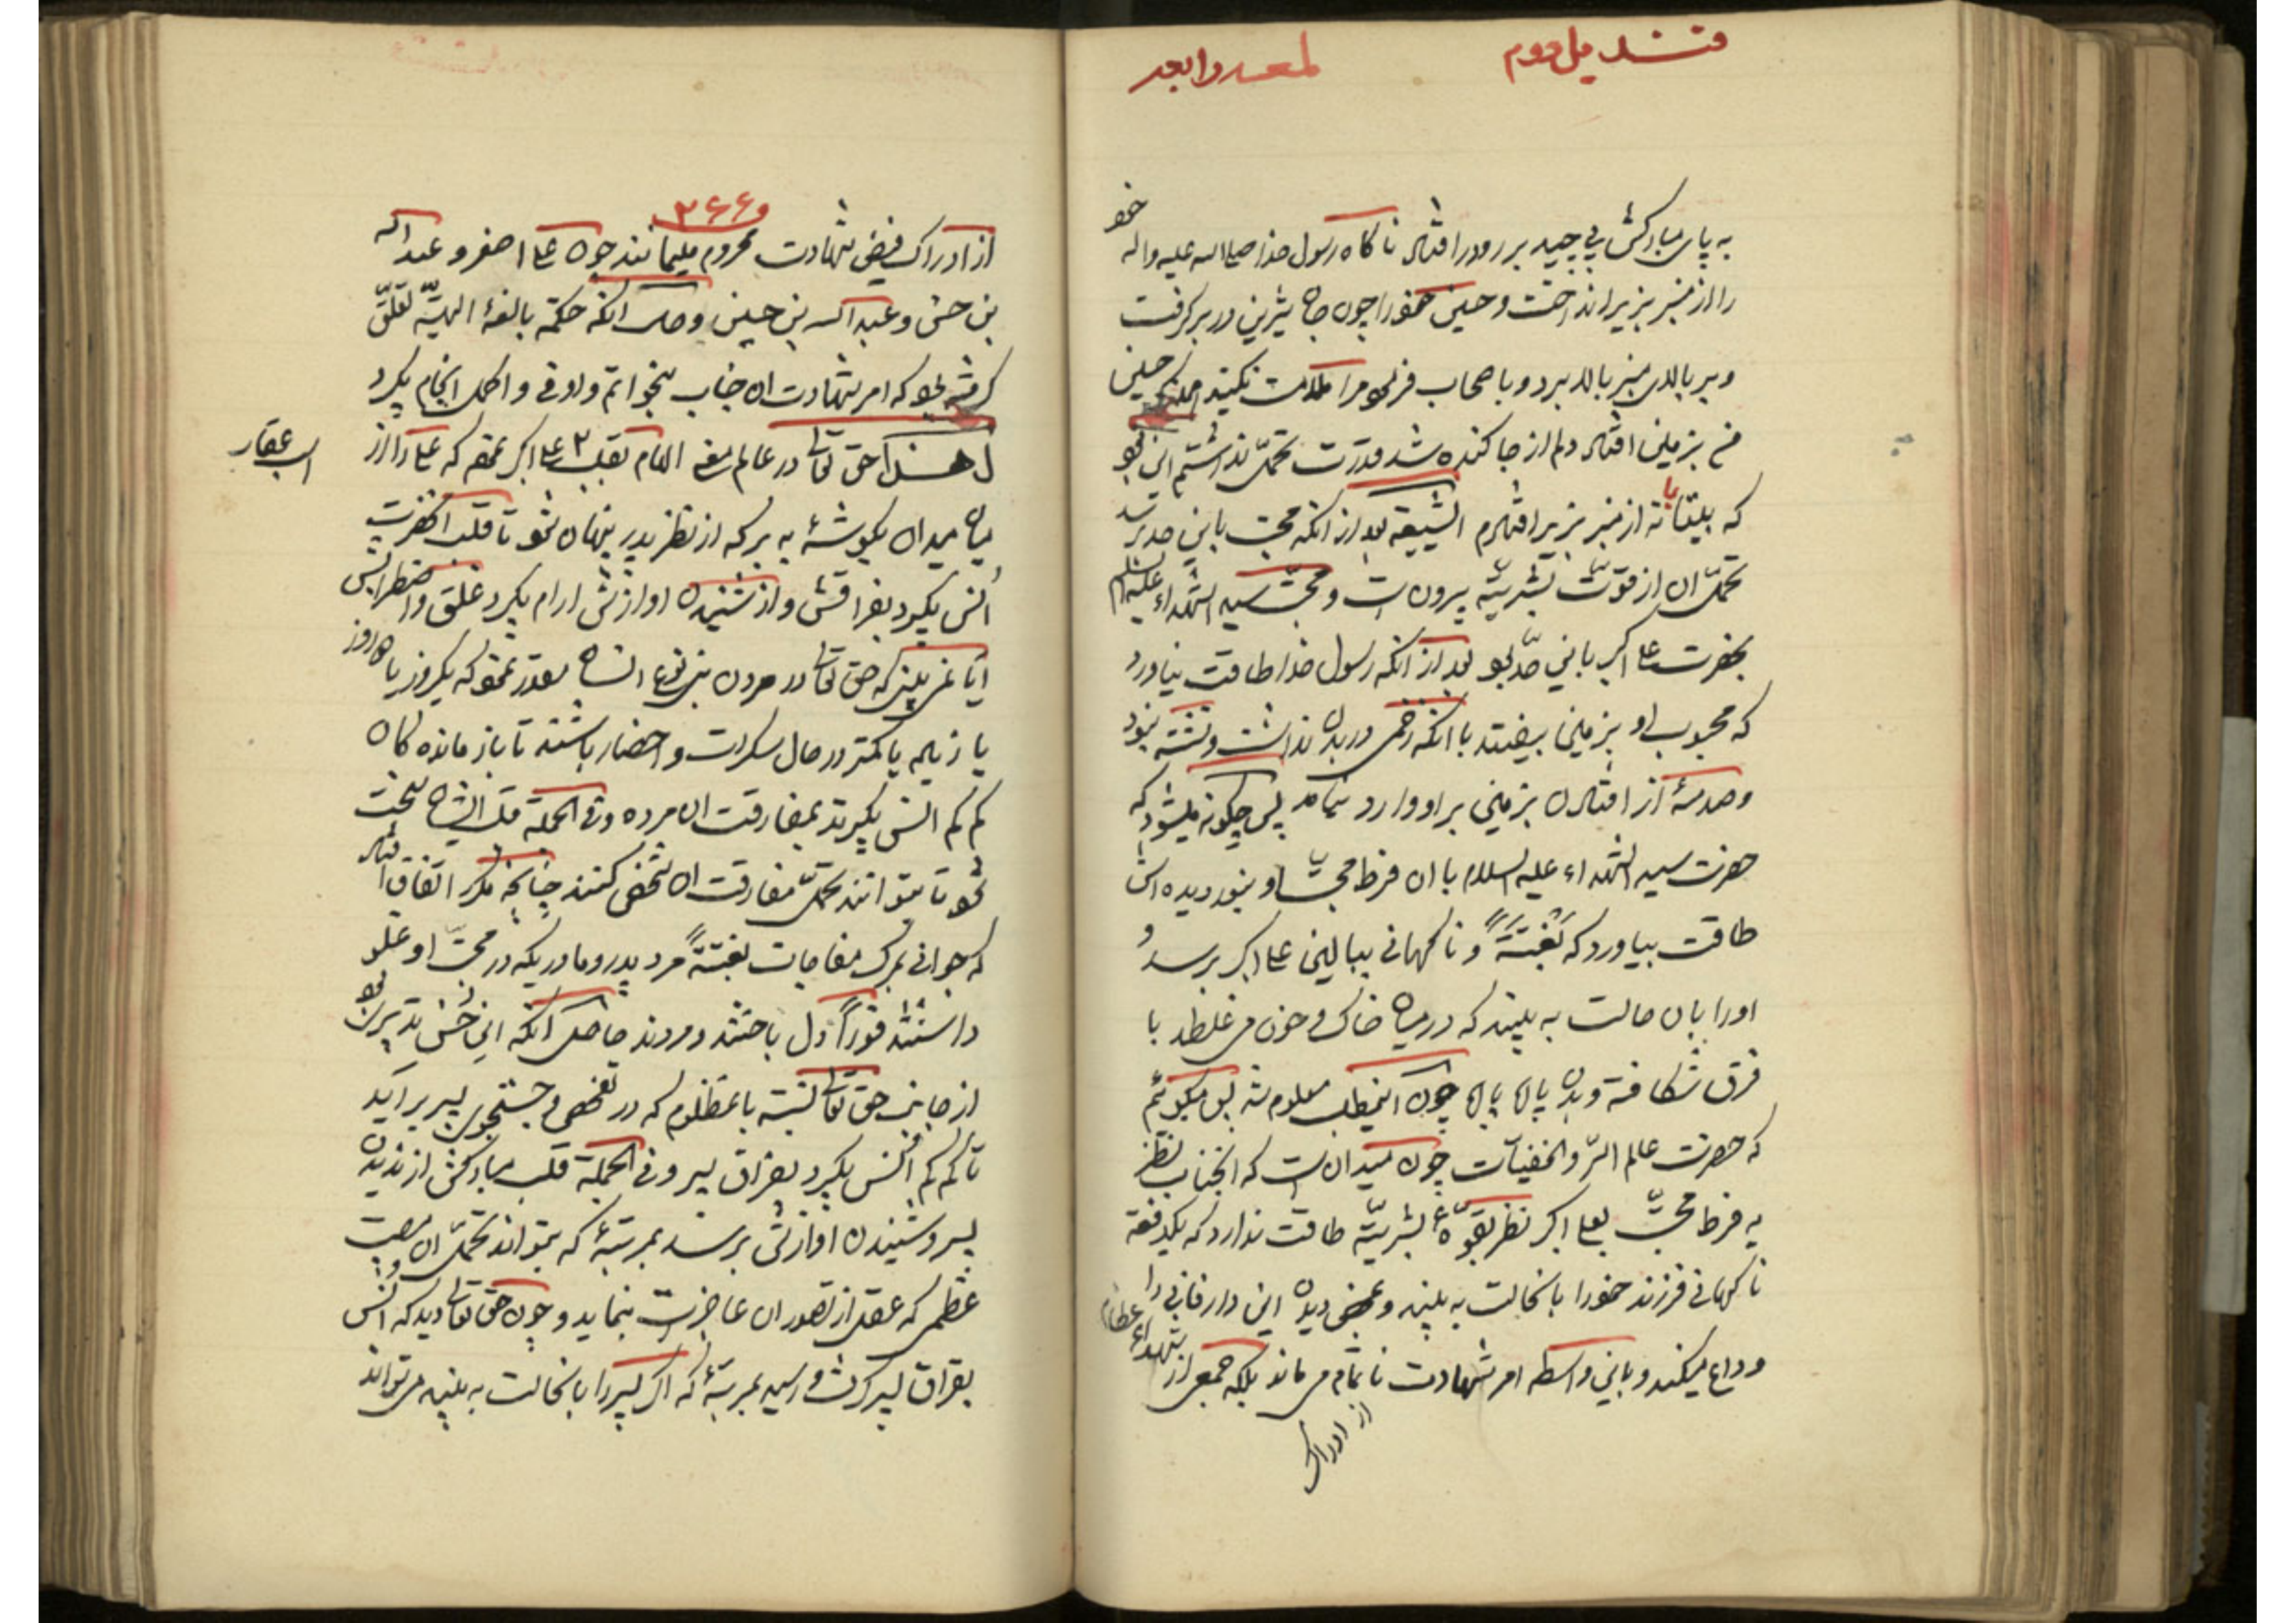 قندیل دوم
لمعه رابعه
به پای مبارکش پیچید بر رو درافتاد ناکاه رسول خدا صلی الله علیه واله خود
را از منبر بزیر انداخت و حسین خود را چون جان شیرین در بر کرفت
و بر بالای منبر بالا برد و باصحاب فرمود مرا ملامت نکنید حسین
من بزمین افتاد دلم از جا کنده شد قدرت تحمل نداشتم این بود
که بیتابانه از منبر بزیر افتادم الشیعه بعد از انکه محبت باین حد برسد
تحمل ان از قوت بشریه بیرون است و محبت سید الشهداء علیه السلام
بحضرت علی اکبر باین حد بود بعد از انکه رسول خدا طاقت نیاورد
که محبوب او بزمین بیفتد با انکه زخمی در بدن نداشت و تشنه نبود
و صدمهٔ از افتادن بزمین بر او وارد نیامد پس چکونه میشود که
حضرت سید الشهداء علیه السلام با ان فرط محبت او بنور دیده اش
طاقت بیاورد که بَغْتَةً و ناکهانی ببالین علی اکبر برسد و
او را بان حالت به بیند که در میان خاک و خون می غلطد با
فرق شکافته و بدن پاره پاره چون اینمطلب معلوم شد پس میکوئیم
که حضرت عالم السر والخفیات چون میدانست که انجناب نظر
به فرط محبت بعلی اکبر نظر بقوهٔ بشریه طاقت ندارد که یکدفعه
ناکهانی فرزند خود را بانحالت به بیند و بمحض دیدن این دار فانی را
وداع میکند و باین واسطه امر شهادت ناتمام می ماند بلکه جمعی از شهداء عظام
از ادراک
و ۲۶۶
از ادراک فیض شهادت محروم میمانند چون علی اصغر و عبد الله
بن حسن و عبد الله بن حسین و حاصل انکه حکمة بالغهٔ الهیه تعلق
کرفته بود که امر شهادت ان جناب بنحو اتم و اوفی و اکمل انجام بکیرد
لهذا حق تعالی در عالم معنی الهام بقلب علی اکبر نمود که علی را از
اسب عقاب
میان میدان بکوشهٔ به بر که از نظر پدر پنهان شود تا قلب انحضرت
اُنس بکیرد بفراقش و از شنیدن اوازش ارام بکیرد قلق و اضطرابش
ایا نمی بینی که حق تعالی در مردن بنی نوع انسان مقدر نموده که یکروز یا ده روز
یا زیاده یا کمتر در حال سکرات و احضار باشند تا بازماندکان
کم کم انس بکیرند بمفارقت ان مرده و فی الجمله قلب ایشان سخت
شود تا بتوانند تحمل مفارقت ان شخص کنند چنانچه مکرر اتفاق افتاد
که جوانی بمرک مفاجات بغتةً مرد پدر و مادریکه در محبت او غلو
داشتند فوراً دل باختند و مردند حاصل انکه این حسن تدبیری بود
از جانب حق تعالی نسبت بانمظلوم که در تفحص و جستجوی پسر براید
تا کم کم اُنس بکیرد بفراق پسر و فی الجمله قلب مبارکش از ندیدن
پسر و شنیدن اوازش برسد بمرتبهٔ که بتواند تحمل ان مصیبت
عظمی که عقل از تصور ان عاجز است بنماید و چون حق تعالی دید که انس
بفراق پسر کرفت و رسید بمرتبهٔ که اکر پسر را بانحالت به بیند می تواند